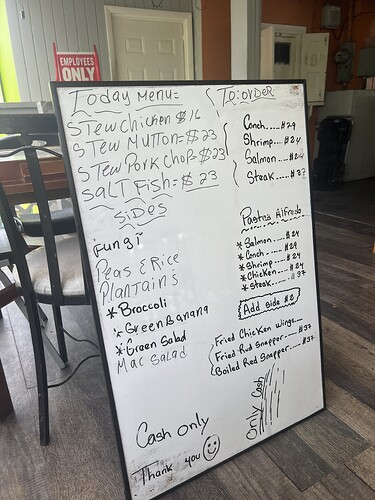 EMPLOYEES
ONLY
Today Menu=
Stew Chicken $16
Stew Mutton=$23
Stew Pork Chop=$23
Salt Fish=$23
Sides
Fungi
Peas & Rice
Plantain's
* Broccoli
* Green Banana
* Green Salad
Mac Salad
Cash only
Thank you
To: order
Conch...$29
Shrimp...$24
Salmon....$24
Steak...$37
Pastas Alfredo
* Salmon....$24
* Conch....$29
* Shrimp....$24
* Chicken....$24
* Steak....$37
Add side $2
Fried Chicken wings...$37
Fried Red Snapper...$37
Boiled Red Snapper...$37
Only Cash